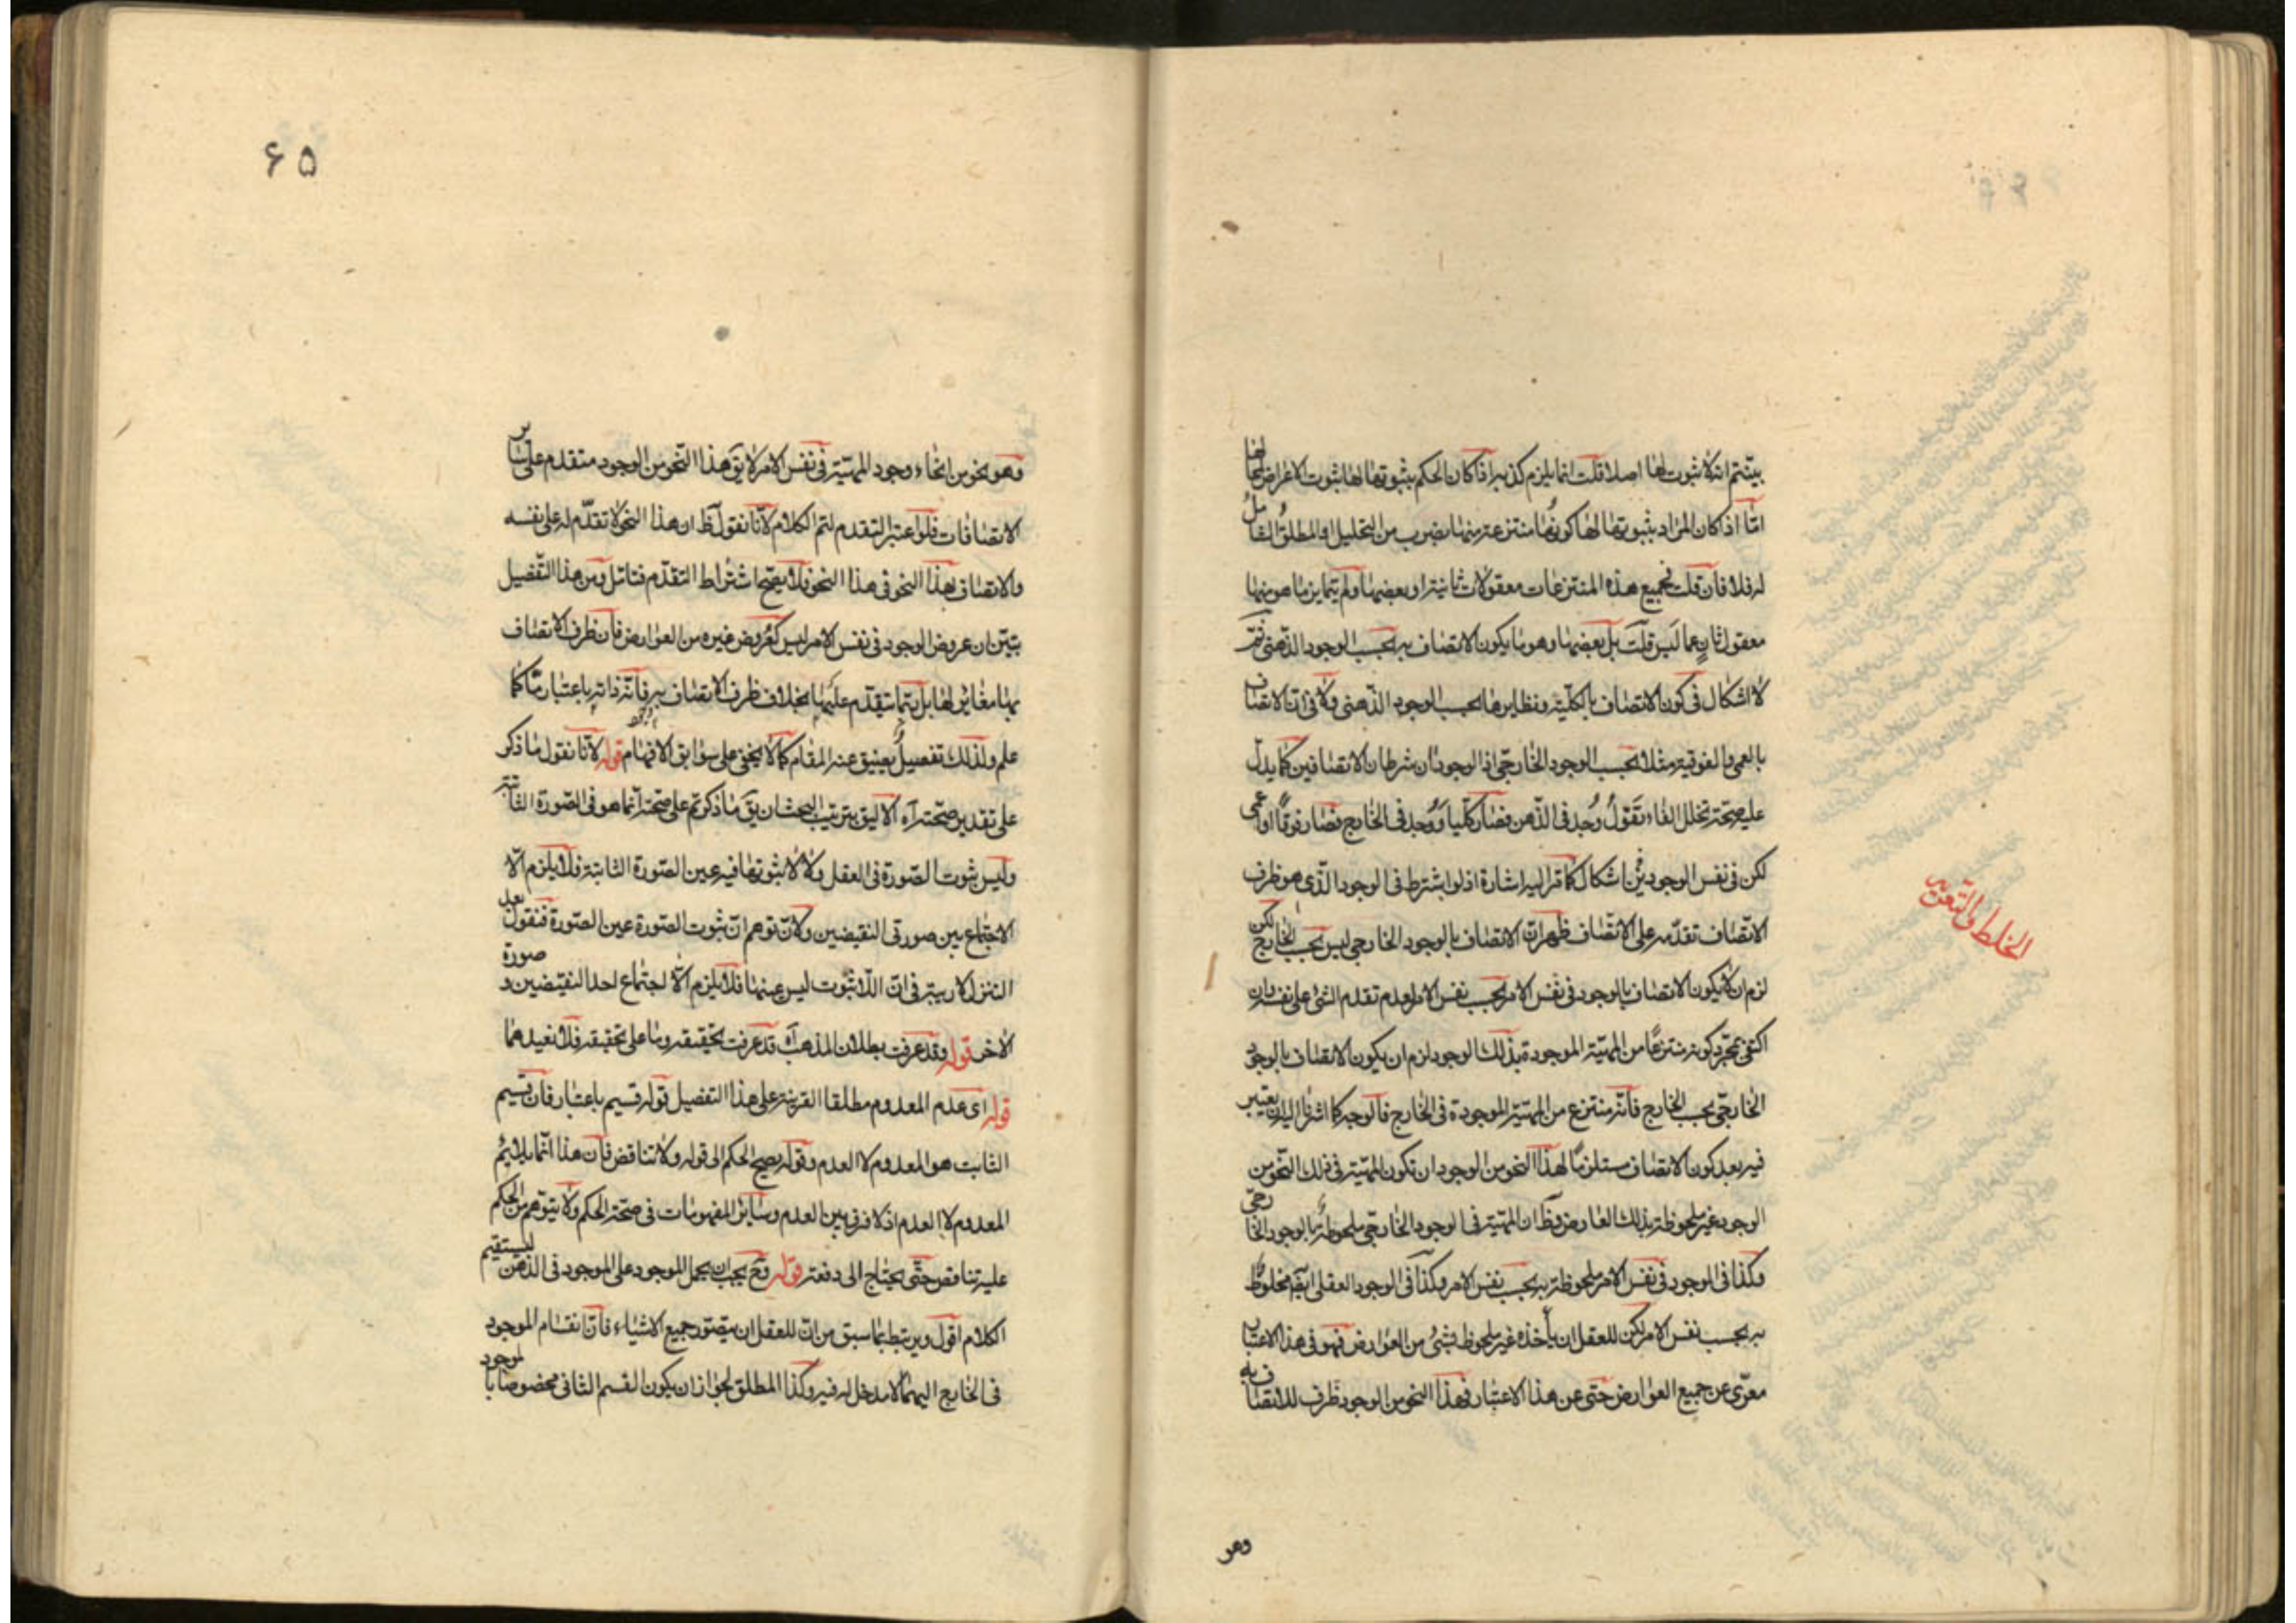 بينتم انه لا ثبوت لها اصلا قلت انما يلزم كذبه اذا كان الحكم بثبوتها لها ثبوت الاعراض لمحالها
امّا اذا كان المراد بثبوتها لها كونها منتزعة منها بضرب من التحليل او المطلق الشامل
له فلا فان قلت فجميع هذه المنتزعات معقولات ثانية او بعضها ولم يتمايز ما هو منها
معقول ثان عما ليس قلت بل بعضها وهو ما يكون الاتصاف به بحسب الوجود الذهنى ثمّ
لا اشكال فى كون الاتصاف بالكلية ونظايرها بحسب الوجود الذهنى ولا فى انّ الاتصاف
بالعمى والفوقية مثلا بحسب الوجود الخارجى اذ الوجودان شرطان الاتصافين كما يدلّ
عليه صحّة تخلل الفاء تقول وُجد فى الذهن فصار كلّيا ووُجد فى الخارج فصار فوقًا او اعمى
لكن فى نفس الوجودين اشكال كما مر اليه اشارة اذ لو اشترط فى الوجود الذى هو ظرف
الاتّصاف تقدّمه على الاتّصاف ظهر انّ الاتصاف بالوجود الخارجى ليس بحسب الخارج لكن
لزم ان لا يكون الاتصاف بالوجود فى نفس الامر بحسب نفس الامر لعدم تقدم الشئ على نفسه وان
اكتفى بمجرّد كونه منتزعًا من المهيّة الموجودة بذلك الوجود لزم ان يكون الاتصاف بالوجود
الخارجىّ بحسب الخارج فانّه منتزع من المهيّة الموجودة فى الخارج فالوجه كما اشرنا اليه ان يعتبر
فيه بعد كون الاتصاف مستلزمًا لهذا النحو من الوجود ان تكون المهيّة فى ذلك النّحو من
الوجود غير ملحوظة بذلك العارض وظ ان المهيّة فى الوجود الخارجىّ ملحوظة بالوجود الخارجى
وكذا فى الوجود فى نفس الامر ملحوظة به بحسب نفس الامر وكذا فى الوجود العقلى ايضا مخلوط
به بحسب نفس الامر لكن للعقل ان يأخذه غير ملحوظ بشئ من العوارض فهو فى هذا الاعتبار
معرّى عن جميع العوارض حتى عن هذا الاعتبار فهذا النحو من الوجود ظرف للاتصاف به
الخلط والتعرية
وهو
۶۵
وهو نحو من انحاء وجود المهيّة فى نفس الامر لا يق هذا النّحو من الوجود متقدم على ساير
الاتصافات فلو اعتبر التقدم لتم الكلام لانّا نقول ظ ان هذا النحو لا تقدّم له على نفسه
والاتصاف بهذا النحو فى هذا النحو فلا يصح اشتراط التقدّم فتامل ومن هذا التفصيل
يتبيّن ان عروض الوجود فى نفس الامر ليس كعروض غيره من العوارض فان ظرف الاتصاف
بها مغاير لها بل ربّما يتقدّم عليها بخلاف ظرف الاتصاف به فانّه ذاته باعتبار مّا كما
علم ولذلك تفصيل يضيق عنه المقام كما لا يخفى على سوابق الافهام قوله لانّا نقول ما ذكر
على تقدير صحّته آه الاليق بترتيب البحث ان يق ما ذكرتم على صحّته انّما هو فى الصورة الثابتة
وليس ثبوت الصّورة فى العقل ولا لا ثبوتها فيه عين الصّورة الثابتة فلا يلزم الّا
الاجتماع بين صورتى النقيضين ولانّ توهم انّ ثبوت الصّورة عين الصّورة فنقول بعد
التنزل لا ريبة فى انّ اللّا ثبوت ليس عينها فلا يلزم الّا اجتماع احد النقيضين و صورة
الاخر قوله وقد عرفت بطلان المذهب آه قد عرفت تحقيقه وما على تحقيقه فلا نعيدهما
قوله اى عدم المعدوم مطلقا القرينة على هذا التفصيل قوله قسيم باعتبار فان قسيم
الثابت هو المعدوم لا العدم وقوله يصح الحكم الى قوله ولا تناقض فان هذا انّما يلايم
المعدوم لا العدم اذ لا فرق بين العدم وساير المفهومات فى صحّة الحكم ولا يتوهم من الحكم
عليه تناقض حتّى يحتاج الى دفعه قوله وح يجب ان يحمل الموجود على الموجود فى الذهن ليستقيم
الكلام اقول ويرتبط بما سبق من انّ للعقل ان يتصوّر جميع الاشياء فانّ انقسام الموجود
فى الخارج اليهما لا مدخل له فيه وكذا المطلق لجواز ان يكون القسم الثانى مخصوصا بالموجود